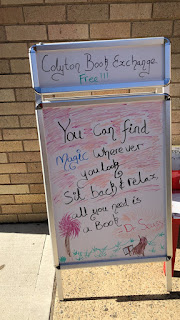 Colyton Book Exchange
Free!!!
You can find
Magic wherever
you look
Sit back & relax,
all you need is
a Book
"D. Seuss"